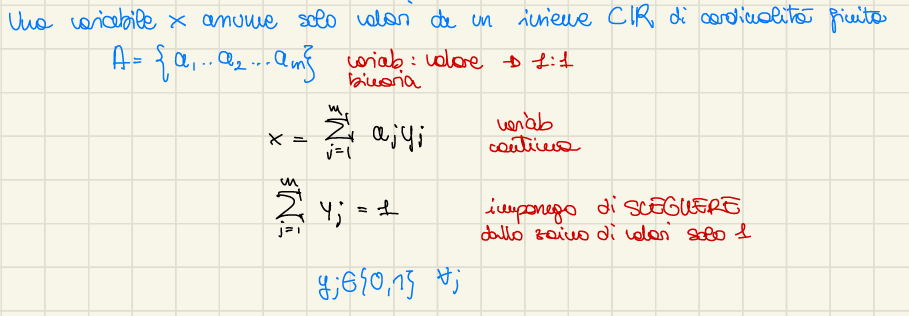 Una variabile x assume solo valori da un insieme CIR, di cardinalità finita
A = {a₁ .. a₂ ... aₘ} variab : valore → 1:1
binaria
x = ∑ⱼ₌₁ᵐ aⱼyⱼ variab
continua
∑ⱼ₌₁ᵐ yⱼ = 1 impongo di SCEGLIERE
dallo zaino di valori solo 1
yⱼ∈{0,1} ∀j